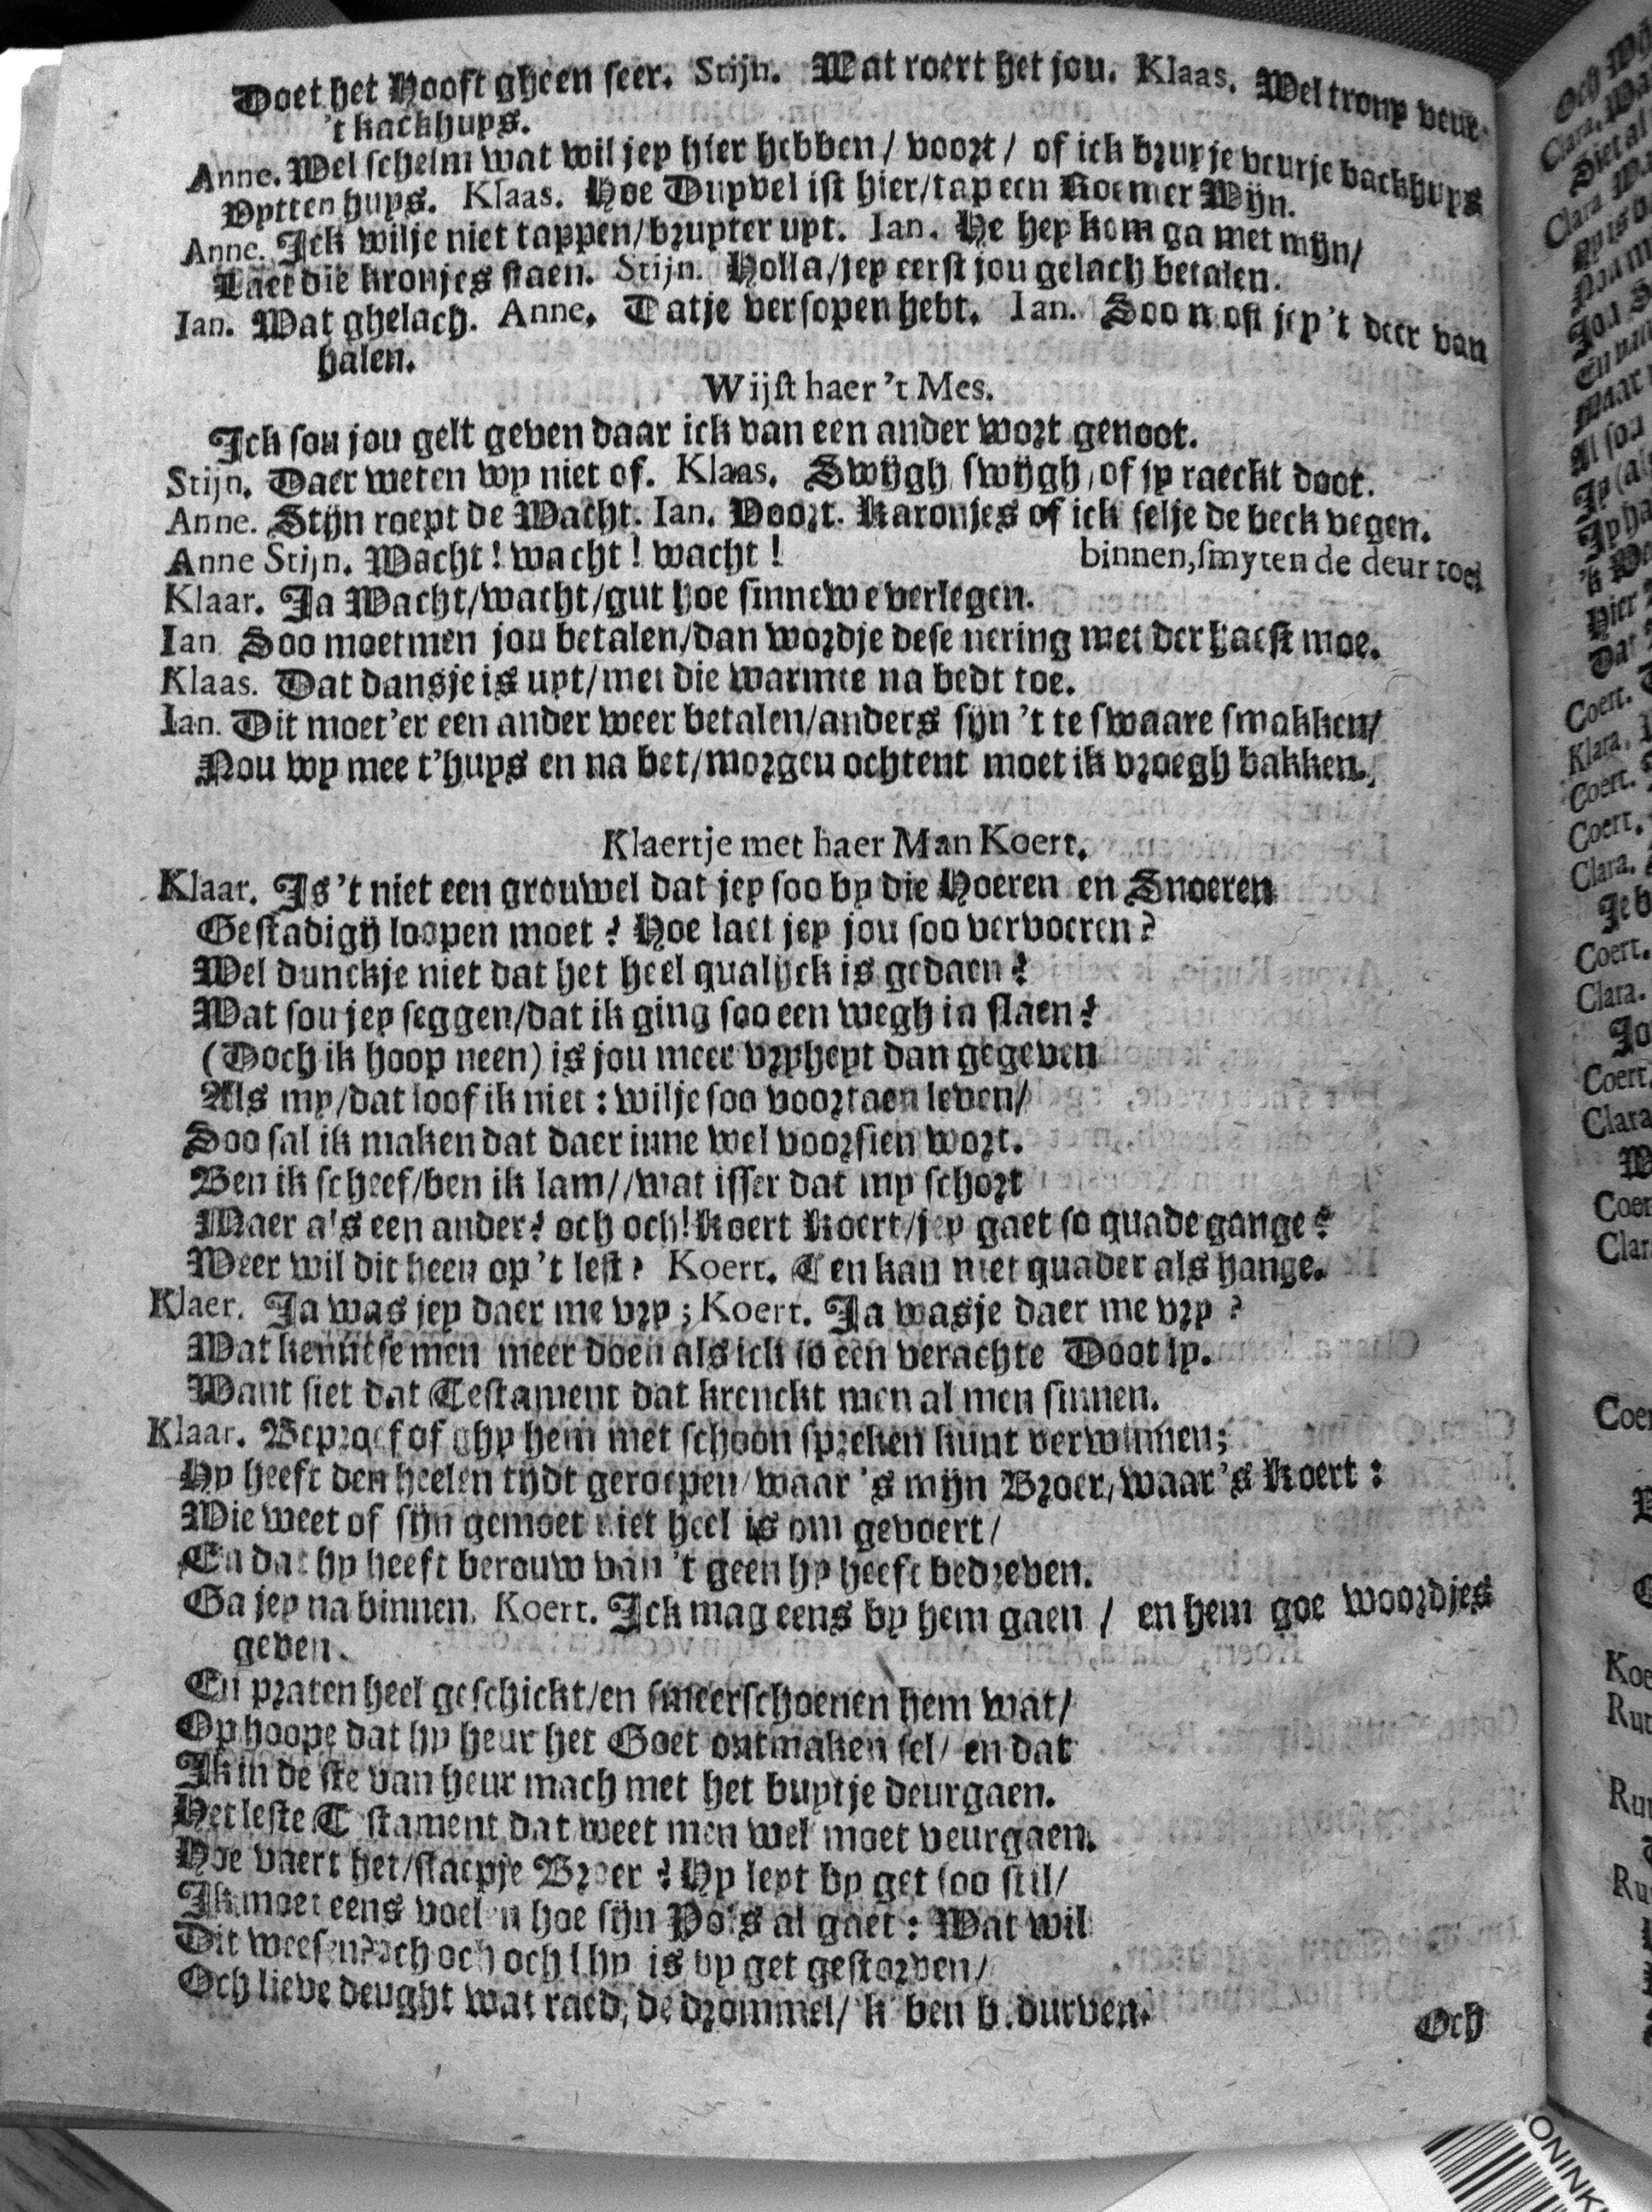 Doet het Hooft gheen seer. Stijn. Wat roert het jou. Klaas. Wel trony veur
't kackhuys.
Anne. Wel schelm wat wil jey hier hebben/ voort/ of ick bruyje veurje backhuys
Uytten huys. Klaas. Hoe Duyvel ist hier/tap een Roemer Wijn.
Anne. Ick wilje niet tappen/bruyter uyt. Ian. He hey kom ga met mijn/
Laet die kronjes staen. Stijn. Holla/jey eerst jou gelach betalen.
Ian. Wat ghelach. Anne. Tatje versopen hebt. Ian. Soo most jey 't deer van
halen.
Wijst haer 't Mes.
Ick sou jou gelt geven daar ick van een ander wort genoot.
Stijn. Daer weten wy niet of. Klaas. Swijgh swijgh, of jy raeckt doot.
Anne. Stijn roept de Wacht. Ian. Voort. Karonjes of ick selje de beck vegen.
Anne Stijn. Wacht! wacht! wacht! binnen, smyten de deur toe
Klaar. Ja Wacht/wacht/gut hoe sinnewe verlegen.
Ian Soo moetmen jou betalen/dan wordje dese nering met der haest moe.
Klaas. Dat dansje is uyt/met die warmte na bedt toe.
Ian. Dit moet'er een ander weer betalen/anders sijn 't te swaare smakken/
Nou wy mee t'huys en na bet/morgen ochtent moet ik vroegh bakken.
Klaertje met haer Man Koert.
Klaar. Is 't niet een grouwel dat jey soo by die Hoeren en Snoeren
Gestadigh loopen moet? Hoe laet jey jou soo vervoeren?
Wel dunckje niet dat het heel qualijck is gedaen?
Wat sou jey seggen/dat ik ging soo een wegh in slaen?
(Doch ik hoop neen) is jou meer vryheyt dan gegeven
Als my/dat loof ik niet: wilje soo voortaen leven/
Soo sal ik maken dat daer inne wel voorsien wort.
Ben ik scheef/ben ik lam//wat isser dat my schort
Maer als een ander? och och! Koert Koert/jey gaet so quade gange?
Weer wil dit heen op 't lest? Koert. Ten kan niet quader als hange.
Klaer. Ja was jey daer me vry; Koert. Ja wasje daer me vry?
Wat kenntse men meer doen als ick so een verachte Doot ly.
Want siet dat Testament dat krenckt men al men sinnen.
Klaar. Beproef of ghy hem met schoon spreken kunt verwinnen;
Hy heeft den heelen tijdt geroepen/waar 's mijn Broer, waar's Koert:
Wie weet of sijn gemoet niet heel is om gevoert/
En dat hy heeft berouw van 't geen hy heeft bedreven.
Ga jey na binnen. Koert. Ick mag eens by hem gaen / en hem goe woordjes
geven.
En praten heel geschickt/en smeerschoenen hem wat/
Op hoope dat hy heur het Goet ontmaken sel/ en dat
Ik in de ste van heur mach met het buytje deurgaen.
Het leste T stament dat weet men wel moet veurgaen.
Hoe vaert het/slaepje Broer? Hy leyt by get soo stil/
Ik moet eens voelen hoe sijn Pols al gaet: Wat wil
Dit weesen? och och och! hy is by get gestorven/
Och lieve deught wat raed, de drommel/ 'k ben b.durven.
Och